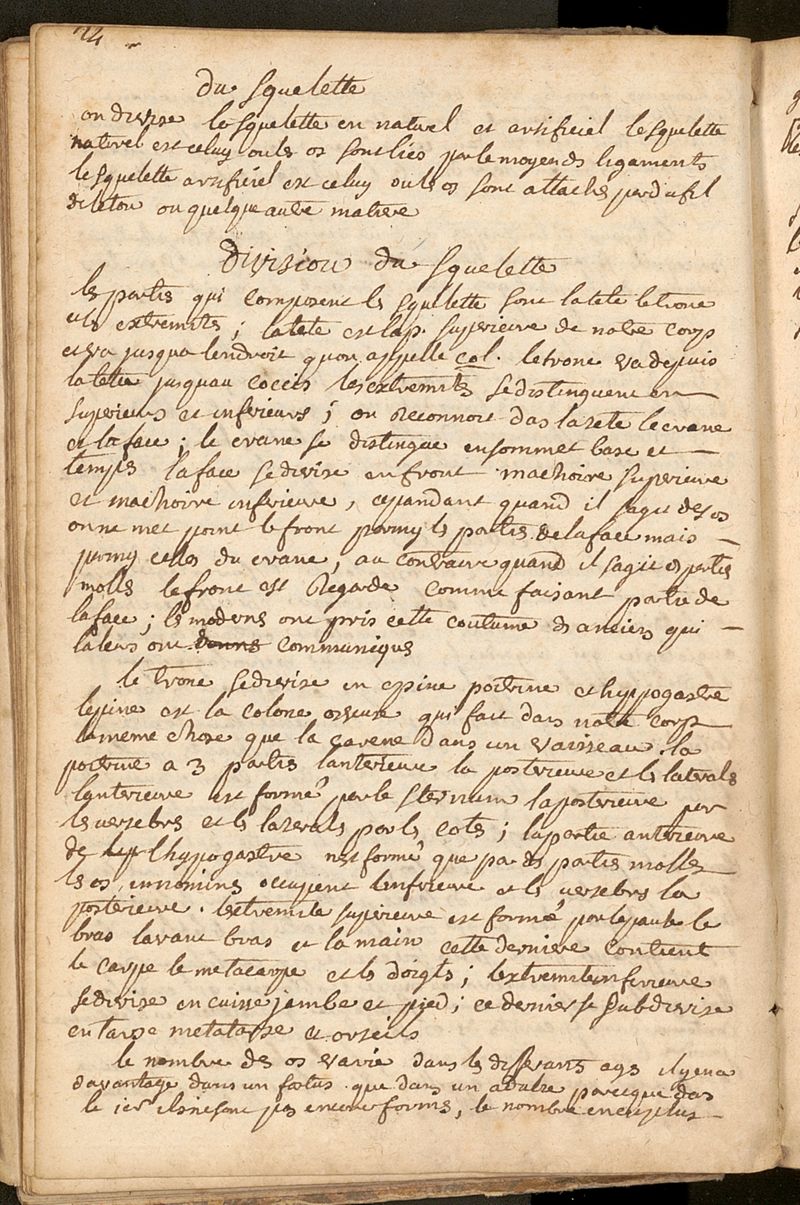 24
du squelette
on divise le squelette en naturel et artificiel le squelette
naturel est celuy ou les os sont liés par le moyen ds ligaments
le squelette artificiel est celuy ou ls os sont attachés par du fil
de leton ou quelque autre matiere
Division du squelette
ls partis qui composent le squelette sont la tete le tronc
et ls extremités ; la tete est la p. superieure de notre corps
et va jusqua lendroit quon appelle col. le tronc va depuis
la tette jusquau coccis les extremités se distinguent en
superieurs et inferieurs ; on reconnoit das la tete le crane
et la face ; le crane se distingue en sommet base et
temps la face se divise en front machoire superieure
et machoire inferieure, cependant quand il sagit des os
on ne met point le front parmy ls partis de la face mais
parmy celles du crane, au contraire quand il sagit ds partis
molls le front est regardé comme faisant partie de
la face ; ls moderns ont pris cette coutume ds anciens qui
la leurs ont donné communiqué
le tronc se divise en epine poitrine et hypogastre
lepine est la colone osseuse qui fait dans notre corps
la meme chose que la carene dans un vaisseau. la
poitrine a 3 partis lanterieure la posterieure et ls laterals
lanterieure est formé par le sternum la posterieure par
ls vertebrs et ls laterals par ls cotés ; la partie anterieure
de lhypogastre nest formé que par ds partis molls
ls os innominés occupent linferieure et ls vertebrs la
posterieure. lextremité superieure est formé par lepaule le
bras lavant bras et la main cette derniere contient
le carpe le metacarpe et ls doigts ; lextremité inferieure
se divise en cuisse jambe et pied ; ce dernier se subdivise
en tarse metatarse et orteils
le nombre des os varie dans ls differants ags il y en a
davantage dans un foetus que dans un adulte parceque das
le 1er ils ne sont pas encore formés, le nombre en est plus